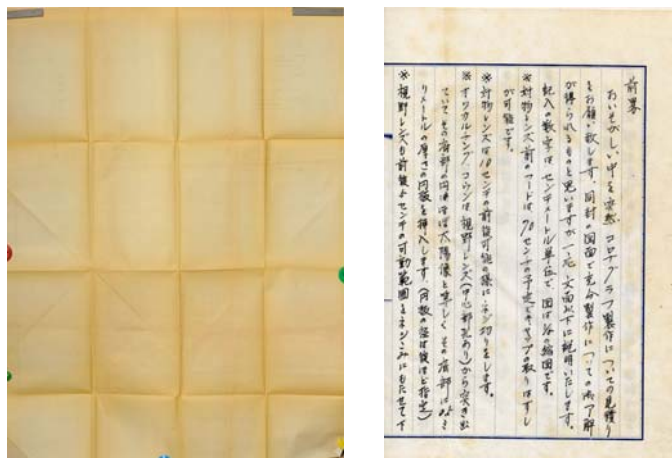 前畧
おいそがしい中を突然コロナグラフ製作についての見積り
をお願い致します。同封の図面で充分製作についての御了解
が得られるものと思いますが一応文面以下に説明いたします。
記入の数字はセンチメートル単位で図は の縮図です。
※対物レンズ前のフードは70センチの予定でキャップの取りはずし
が可能です。
※対物レンズは10センチの前後可能の様にネジ切りをします。
※オリカルチンプ、コウンは視野レンズ(中心部孔あり)から突き出
ていてその底部の円はほぼ太陽像と等しくその底部には ミ
リメートルの厚さの円板を挿入します(円板の径は後ほど指定)
※視野レンズも前後 センチの可動範囲をネジこみにもたせて下